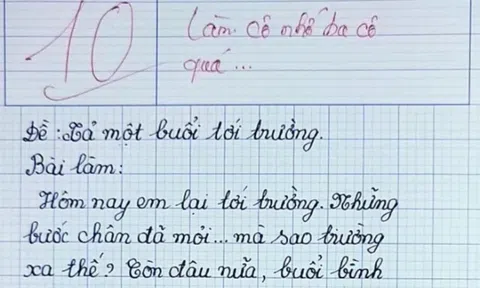 10
Làm cô nhớ ba cô
quá...
Đề: Tả một buổi tới trường.
Bài làm:
Hôm nay em lại tới trường. Những
bước chân đã mỏi... mà sao trường
xa thế? Còn đâu nữa, buổi bình